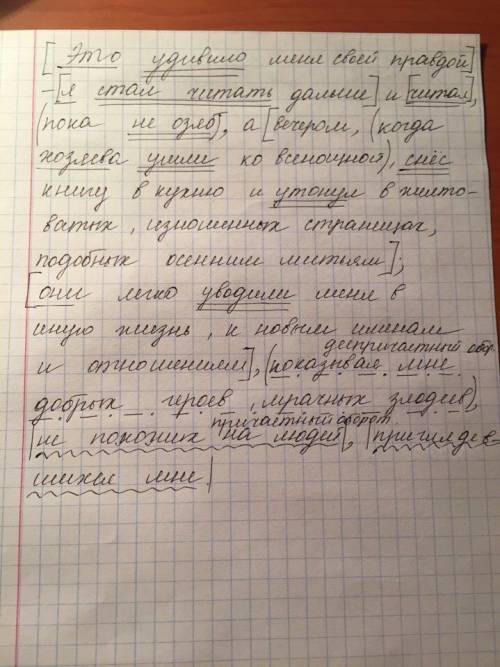 [Это удивило меня своей правдой]
-[я стал читать дальше] и [читал],
(пока не озяб), а [вечером, (когда
хозяева ушли ко всенощной), снёс
книгу в кухню и утонул в желто-
ватых, изношенных страницах,
подобных осенним листьям];
[они легко уводили меня в
иную жизнь, к новым именам
деепричастный обор.
и отношениям], (показывая мне
добрых героев, мрачных злодеев),
причастный оборот
|не похожих на людей|, |приглядев-
шихся мне.|